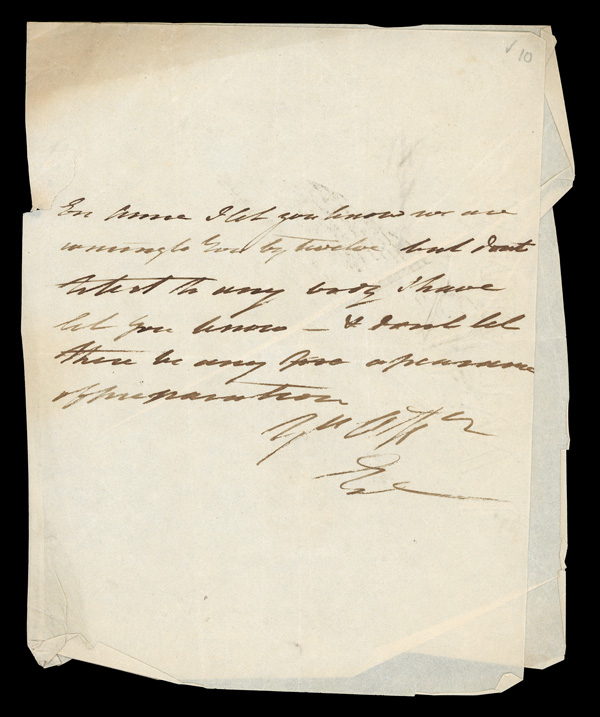 10
Anne I let you know we are
coming to You by twelve but dont
to any body I have
let you know — & don't let
there be any apearance
of preparation
Yrs